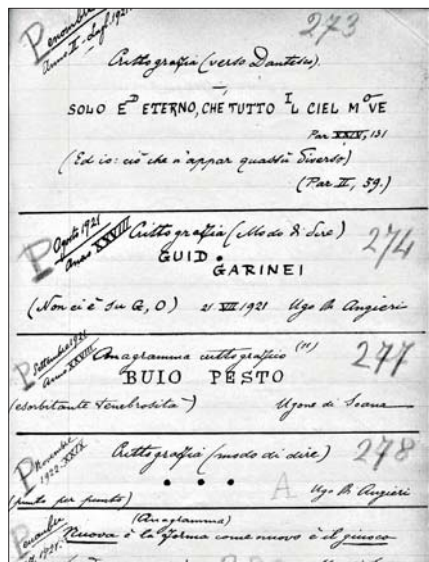 Penombra
Anno II - Lugl. 1921.
273
Crittografia (verso Dantesco).
SOLO ED ETERNO, CHE TUTTO IL CIEL MOVE
Par XXIV, 131
(Ed io: ciò che n'appar quassù diverso)
(Par. II, 59.)
P Agosto 1921
Anno XXVIII
Crittografia (Modo di dire)
274
GUID.
GARINEI
(Non ci è su G, O) 21 VII 1921 Ugo
P Settembre 1921
Anno XXVIII
Anagramma crittografico (11)
277
BUIO PESTO
(esorbitante tenebrosità) Ugone di Soana
P Novembre
1922-XXIX
Crittografia (modo di dire)
278
• • •
(punto per punto) A Ugo
(Anagramma)
1921.
Nuova è la forma come nuovo è il giuoco